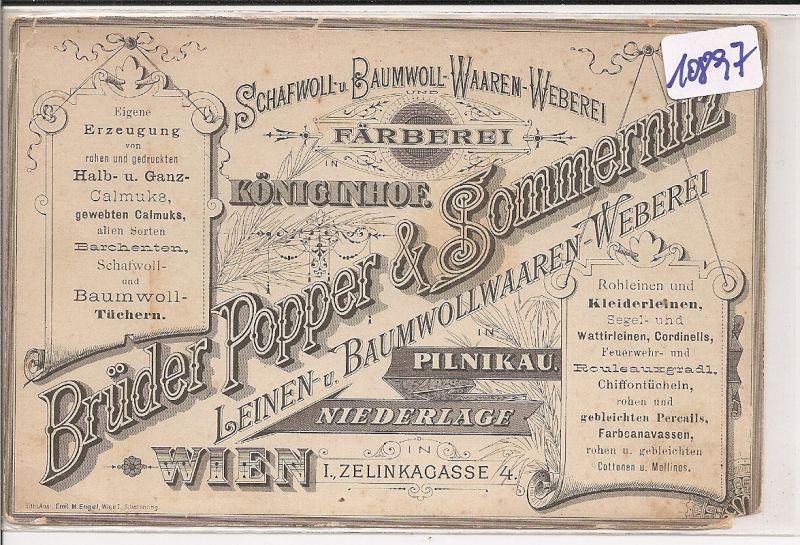 10897
SCHAFWOLL- u. BAUMWOLL-WAAREN-WEBEREI
UND
FÄRBEREI
IN
KÖNIGINHOF.
Brüder Popper & Sommernitz
LEINEN- u. BAUMWOLLWAAREN-WEBEREI
IN
PILNIKAU.
NIEDERLAGE
IN
WIEN I., ZELINKAGASSE 4.
Eigene
Erzeugung
von
rohen und gedruckten
Halb- u. Ganz-
Calmuks,
gewebten Calmuks,
allen Sorten
Barchenten,
Schafwoll-
und
Baumwoll-
Tüchern.
Rohleinen und
Kleiderleinen,
Segel- und
Wattirleinen, Cordinells,
Feuerwehr- und
Rouleauxgradl,
Chiffontücheln,
rohen und
gebleichten Percails,
Farbcanavassen,
rohen u. gebleichten
Cottonen u. Mollinos.
Lith. Anst. Emil M. Engel, Wien I.